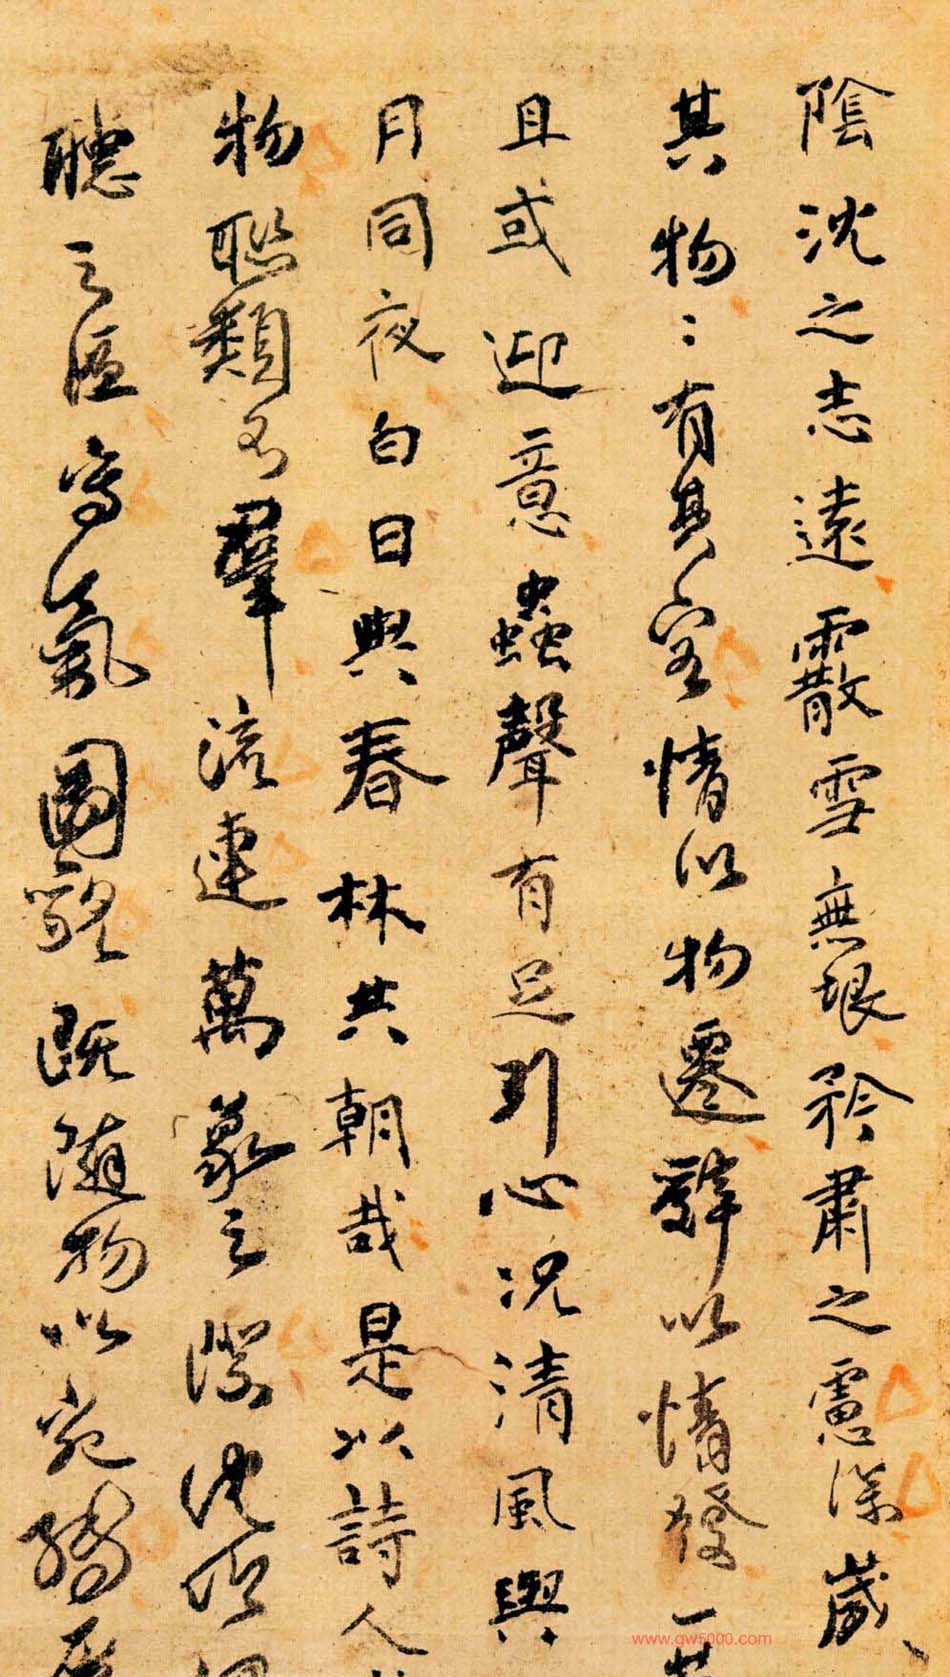 陰沈之志遠霰雪無垠矜肅之慮深歲
其物〻有其容情以物遷辭以情發一
且或迎意蟲聲有足引心況清風與
月同夜白日與春林共朝哉是以詩人
物聯類羣流連萬象之際沈吟
聽之區寫氣圖貌既隨物以宛轉
www.gw5000.com